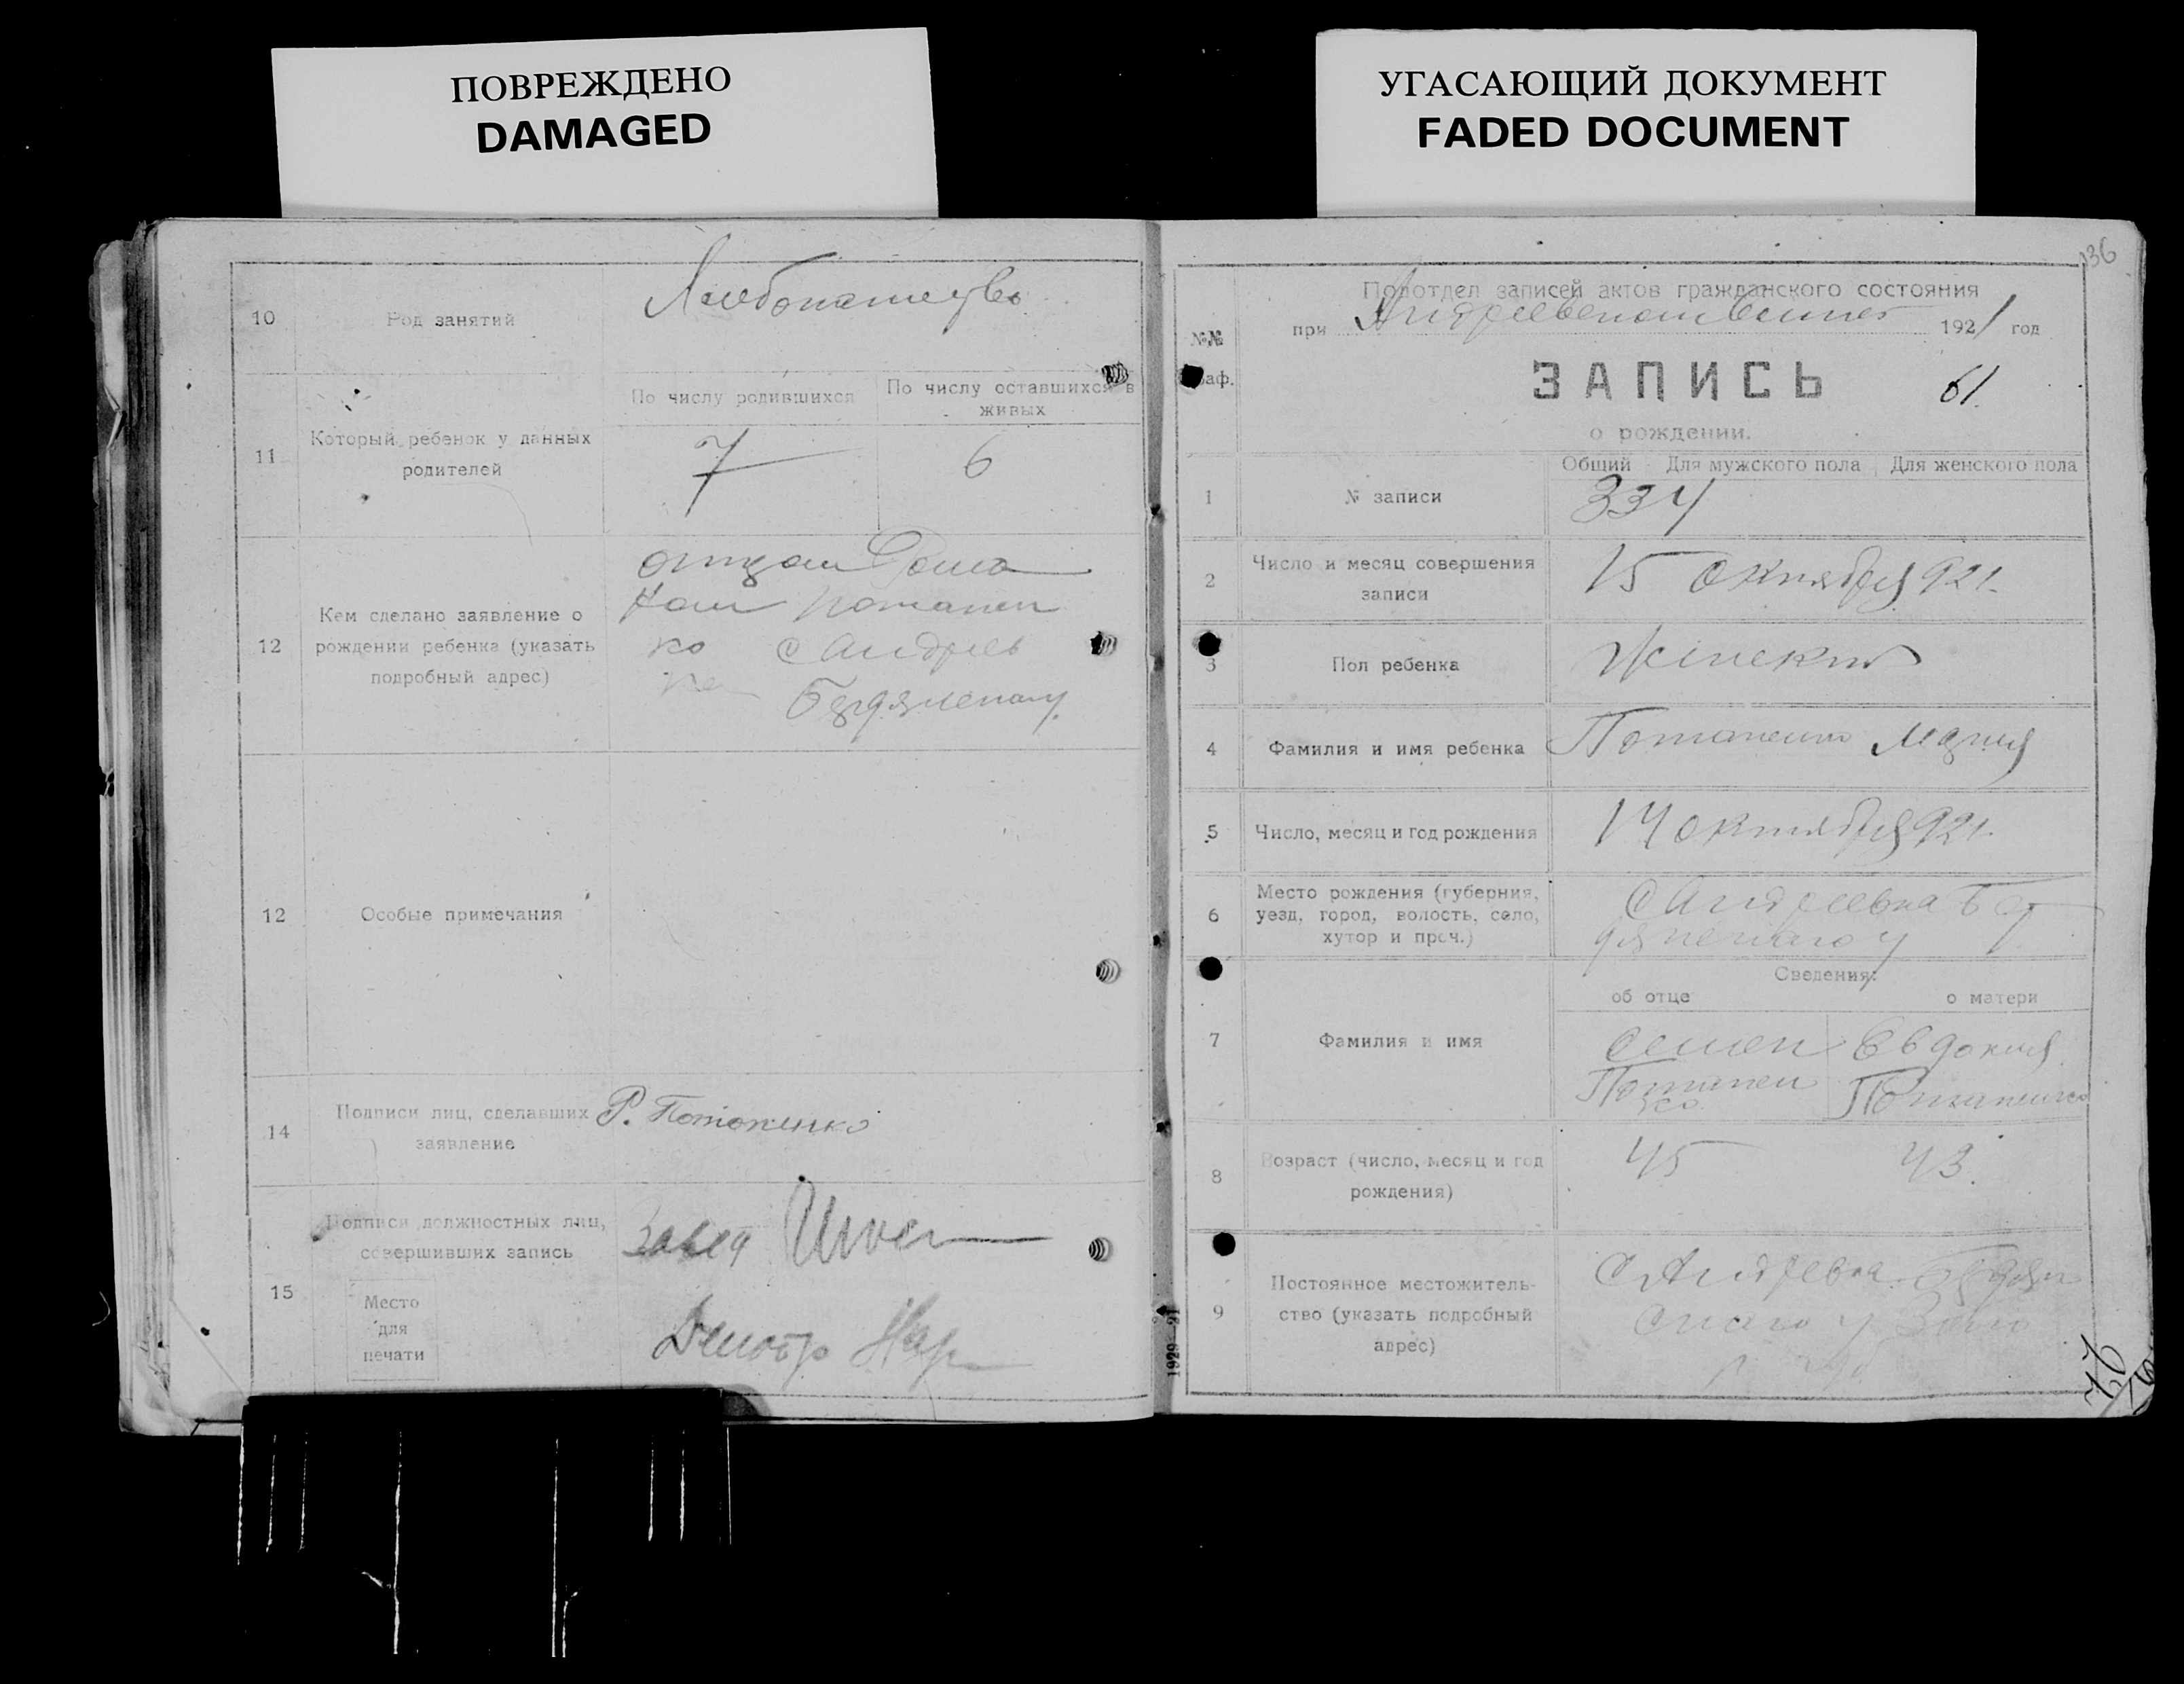 ПОВРЕЖДЕНО
DAMAGED
УГАСАЮЩИЙ ДОКУМЕНТ
FADED DOCUMENT
10
Род занятий
11
Который ребенок у данных
родителей
По числу родившихся
По числу оставшихся в
живых
7
6
12
Кем сделано заявление о
рождении ребенка (указать
подробный адрес)
отцом
ко с Андреев
12
Особые примечания
14
Подписи лиц, сделавших
заявление
Р. Потопенко
15
Подписи должностных лиц,
совершивших запись
Завед
Место
для
печати
136
№№
Подотдел записей актов гражданского состояния
при 1921 год
ЗАПИСЬ
61.
о рождении.
1
№ записи
Общий Для мужского пола Для женского пола
334
2
Число и месяц совершения
записи
15 октября 921.
3
Пол ребенка
4
Фамилия и имя ребенка
Потапенко Мария
5
Число, месяц и год рождения
14 октября 921.
6
Место рождения (губерния,
уезд, город, волость, село,
хутор и проч.)
с Андреевка Бер
7
Фамилия и имя
Сведения:
об отце
о матери
Семен
Потапен
ко
Евдокия
Потапенко
8
Возраст (число, месяц и год
рождения)
45
43.
9
Постоянное местожитель-
ство (указать подробный
адрес)
с Андреевка
1929—21